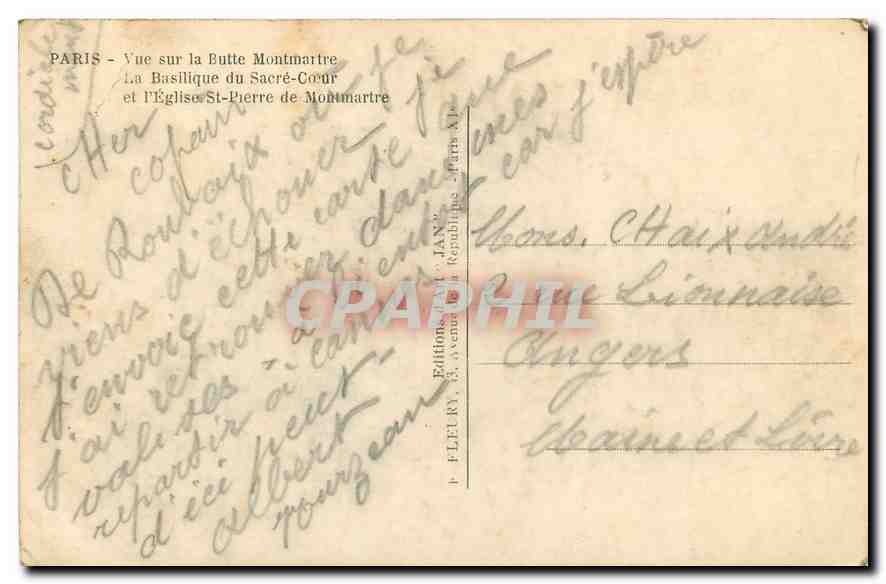 PARIS - Vue sur la Butte Montmartre
La Basilique du Sacré-Cœur
et l'Église St-Pierre de Montmartre
cHer
copain
De Roubaix où je
viens d'échouer je
t'envoie cette carte que
j'ai retrouvée dans mes
valises - à car j'espère
repartir à
d'ici peut.
Albert
Editions d'Art "JAN"
FLEURY, 43, Avenue de la République - Paris XIe
Mons. CHaix André
2 rue Lionnaise
Angers
Maine et Loire
CARPHIL